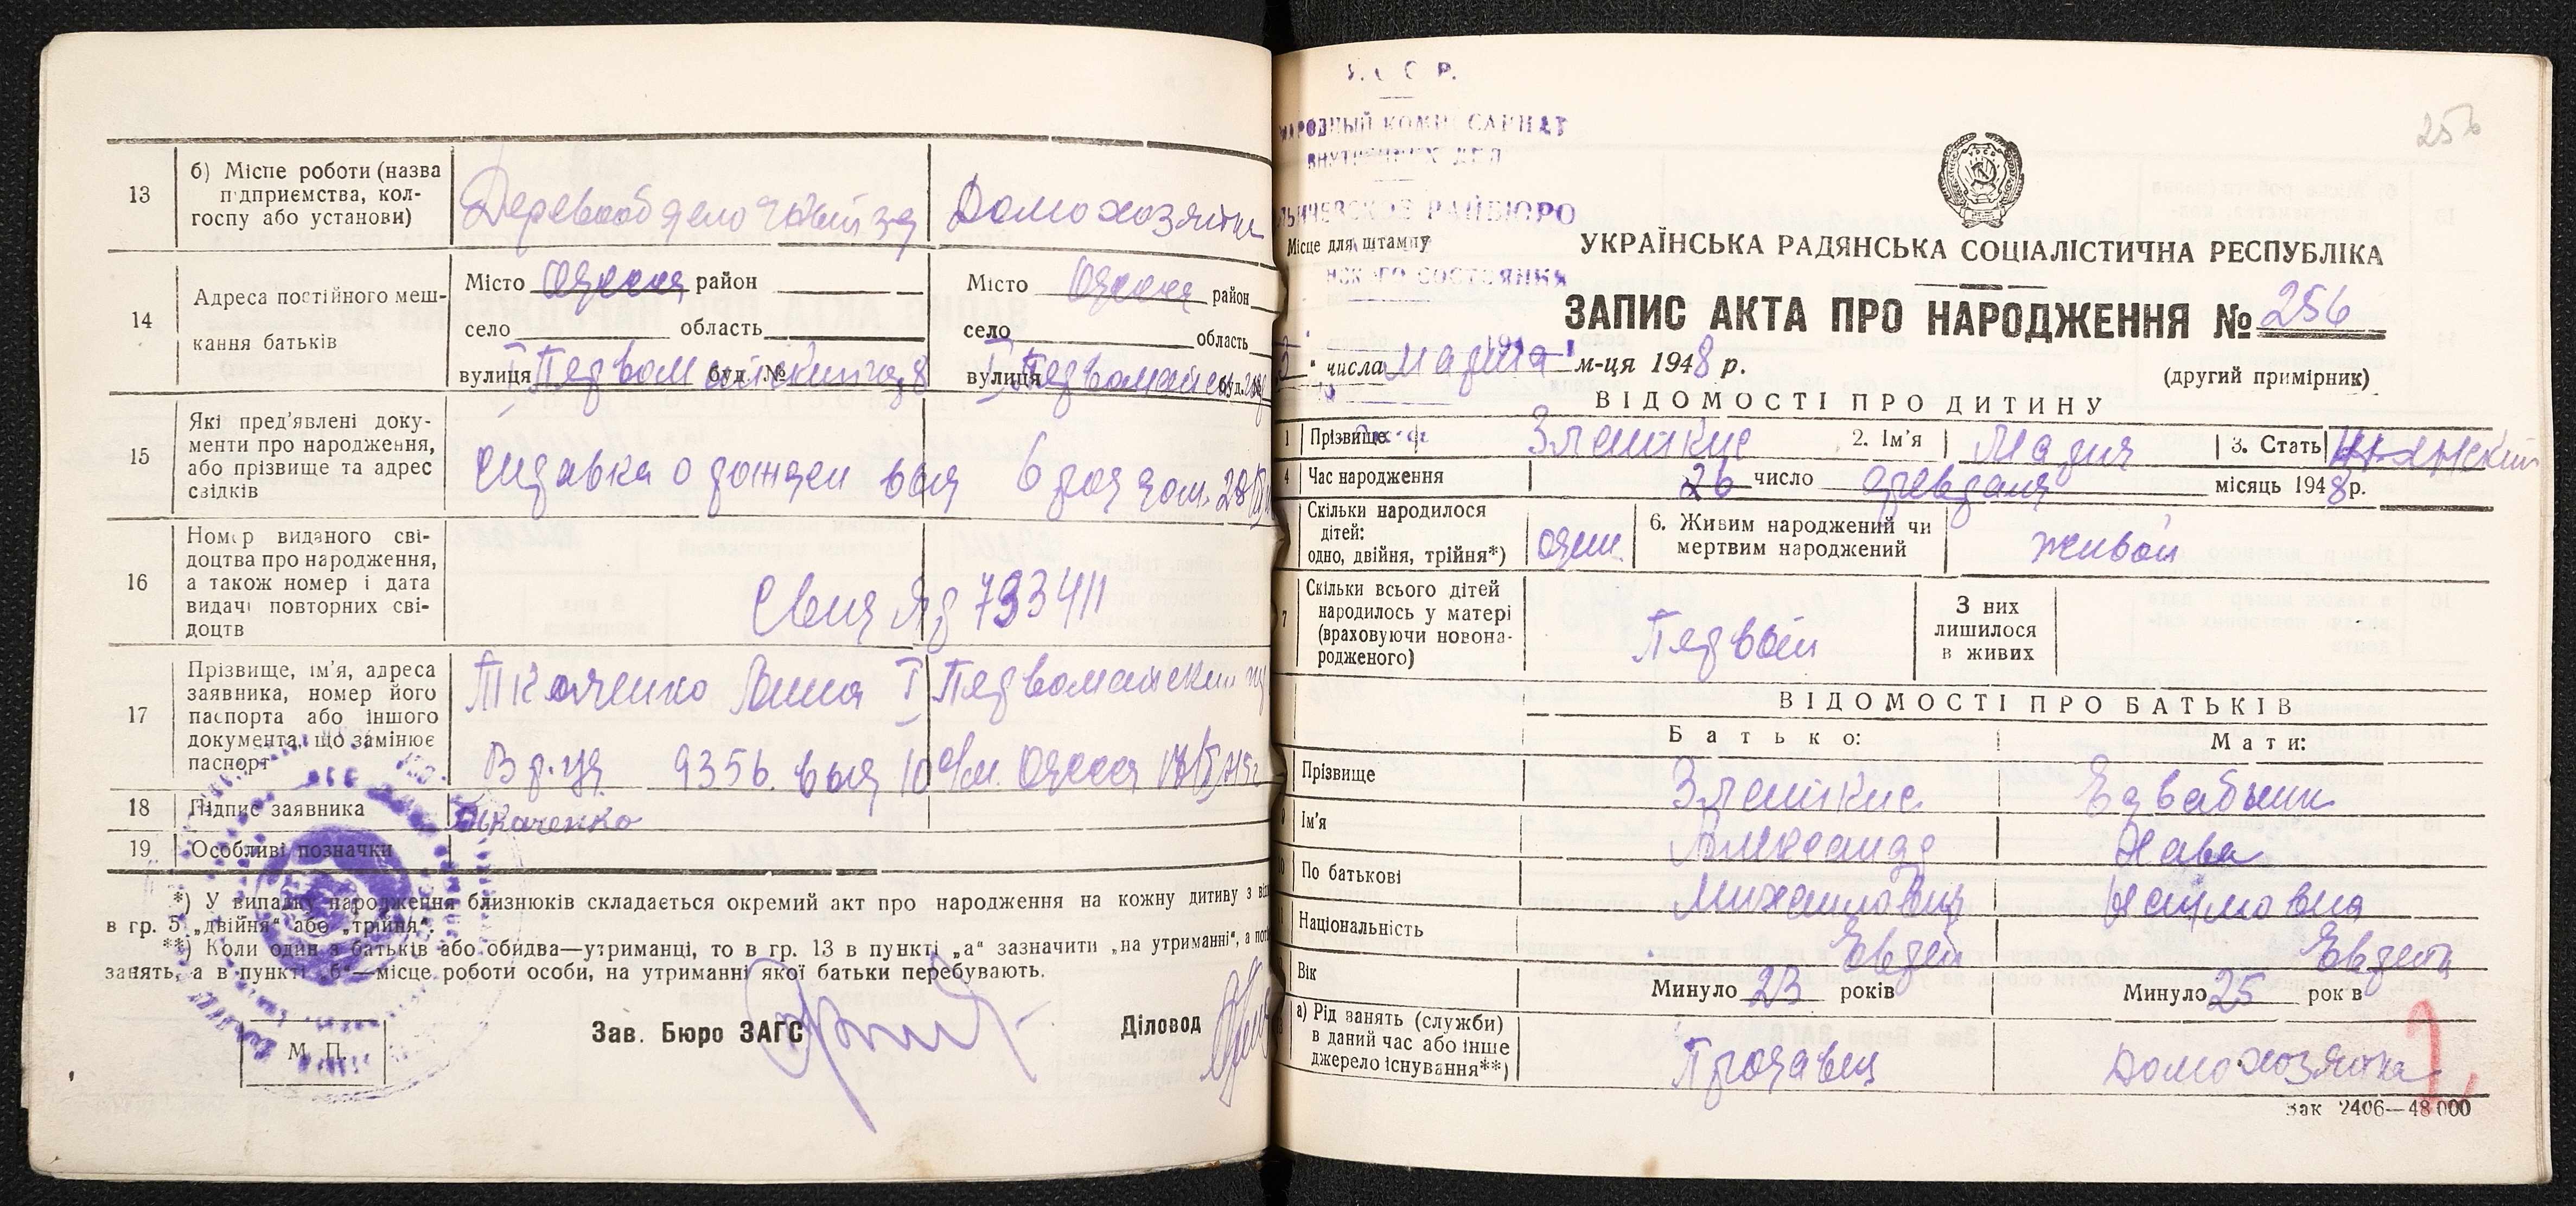 13
б) Місце роботи (назва
підприємства, кол-
госпу або установи)
Деревообделочный з-д
Домохозяйка
14
Адреса постійного меш-
кання батьків
Місто Одесса район
село область
вулиця І Первомайский буд. № 8
Місто Одесса район
село область
вулиця І Первомайск буд.
15
Які пред'явлені доку-
менти про народження,
або прізвище та адрес
свідків
Справка о рожден выд 6 род дом. 28
16
Номер виданого сві-
доцтва про народження,
а також номер і дата
видачі повторних сві-
доцтв
793411
17
Прізвище, ім'я, адреса
заявника, номер його
паспорта або іншого
документа, що замінює
паспорт
Ткаченко Анна І Первомайский
9356 выд 10 о/м. Одесса
18
Підпис заявника
Ткаченко
19
Особливі позначки
*) У випадку народження близнюків складається окремий акт про народження на кожну дитину з
в гр. 5 „двійня“ або „трійня“.
**) Коли один з батьків або обидва—утриманці, то в гр. 13 в пункті „а“ зазначити „на утриманні“, а
занять, а в пункті „б“—місце роботи особи, на утриманні якої батьки перебувають.
М. П.
Зав. Бюро ЗАГС
Діловод
256
НАРОДНЫЙ КОМИССАРИАТ
ВНУТРЕННИХ ДЕЛ
РАЙБЮРО
Місце для штампу
СОСТОЯНИЯ
УКРАЇНСЬКА РАДЯНСЬКА СОЦІАЛІСТИЧНА РЕСПУБЛІКА
ЗАПИС АКТА ПРО НАРОДЖЕННЯ № 256
3 " числа марта м-ця 1948 р.
(другий примірник)
ВІДОМОСТІ ПРО ДИТИНУ
1 Прізвище 2. Ім'я Мария 3. Стать женский
4 Час народження 26 число февраля місяць 1948 р.
Скільки народилося
дітей:
одно, двійня, трійня*)
один
6. Живим народжений чи
мертвим народжений
живой
7
Скільки всього дітей
народилось у матері
(враховуючи новона-
родженого)
Первой
З них
лишилося
в живих
ВІДОМОСТІ ПРО БАТЬКІВ
Батько: Мати:
Прізвище
Ім'я Александр Хава
По батькові Михайлович
Національність Еврей Еврей
Вік Минуло 23 років Минуло 25 років
а) Рід занять (служби)
в даний час або інше
джерело існування**)
Продавец
Домохозяйка
Зак 2406—48 000